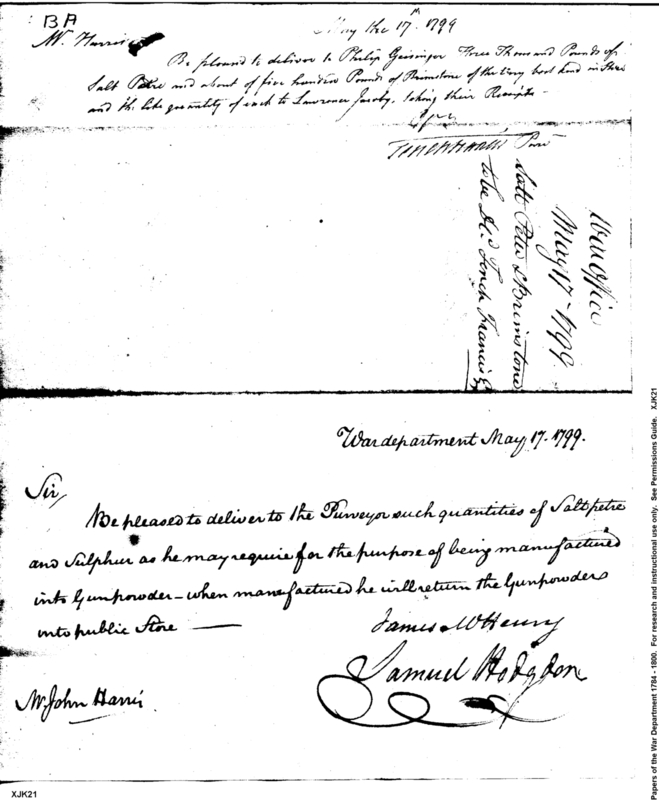 BA
May the 17th 1799
Mr. Harris
Be pleased to deliver to Philip Geisinger Three Thousand Pounds of
Salt Petre and about of five hundred Pounds of Brimstone of the very best kind in Store
and the like quantity of each to Lawrence Jacoby, taking their Receipts
War Office
May 17 - 1799
Salt Petre & Brimstone
to be Dd. Tench Francis
War department May 17. 1799.
Sir,
Be pleased to deliver to the Purveyor such quantities of Saltpetre
and Sulphur as he may require for the purpose of being manufactured
into Gunpowder - when manufactured he will return the Gunpowder
into public Store
James McHenry
Samuel Hodgdon
Mr. John Harris
XJK21
Papers of the War Department 1784 - 1800. For research and instructional use only. See Permissions Guide. XJK21